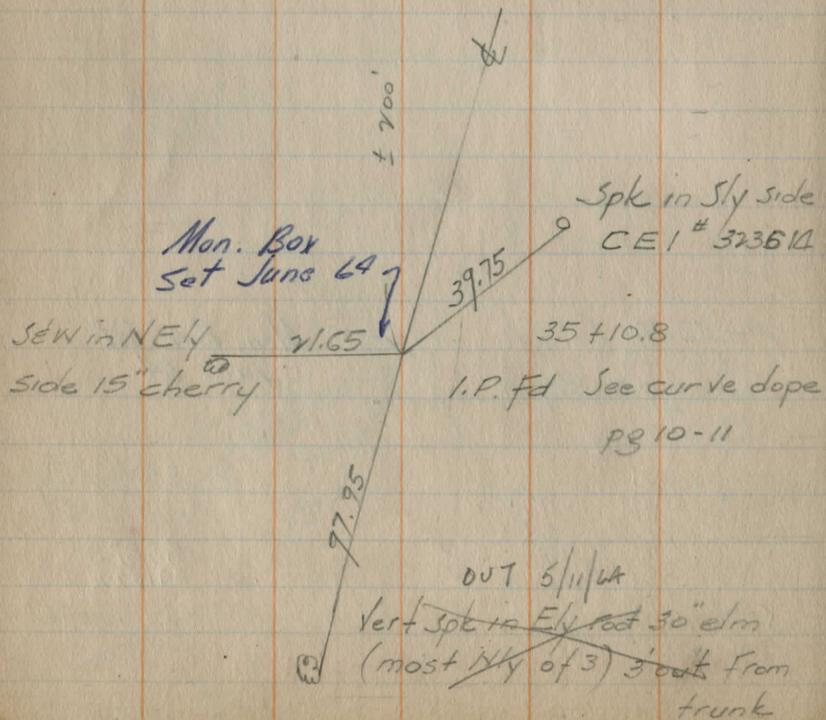 ℄
± 200'
Spk in Sly side
CEI # 323614
39.75
Mon. Box
Set June 64
S&W in NEly
side 15" cherry
21.65
35+10.8
I.P. Fd See curve dope
pg 10-11
77.95
OUT 5/11/64
Vert spk in Ely root 30" elm
(most Nly of 3) 3' out from
trunk